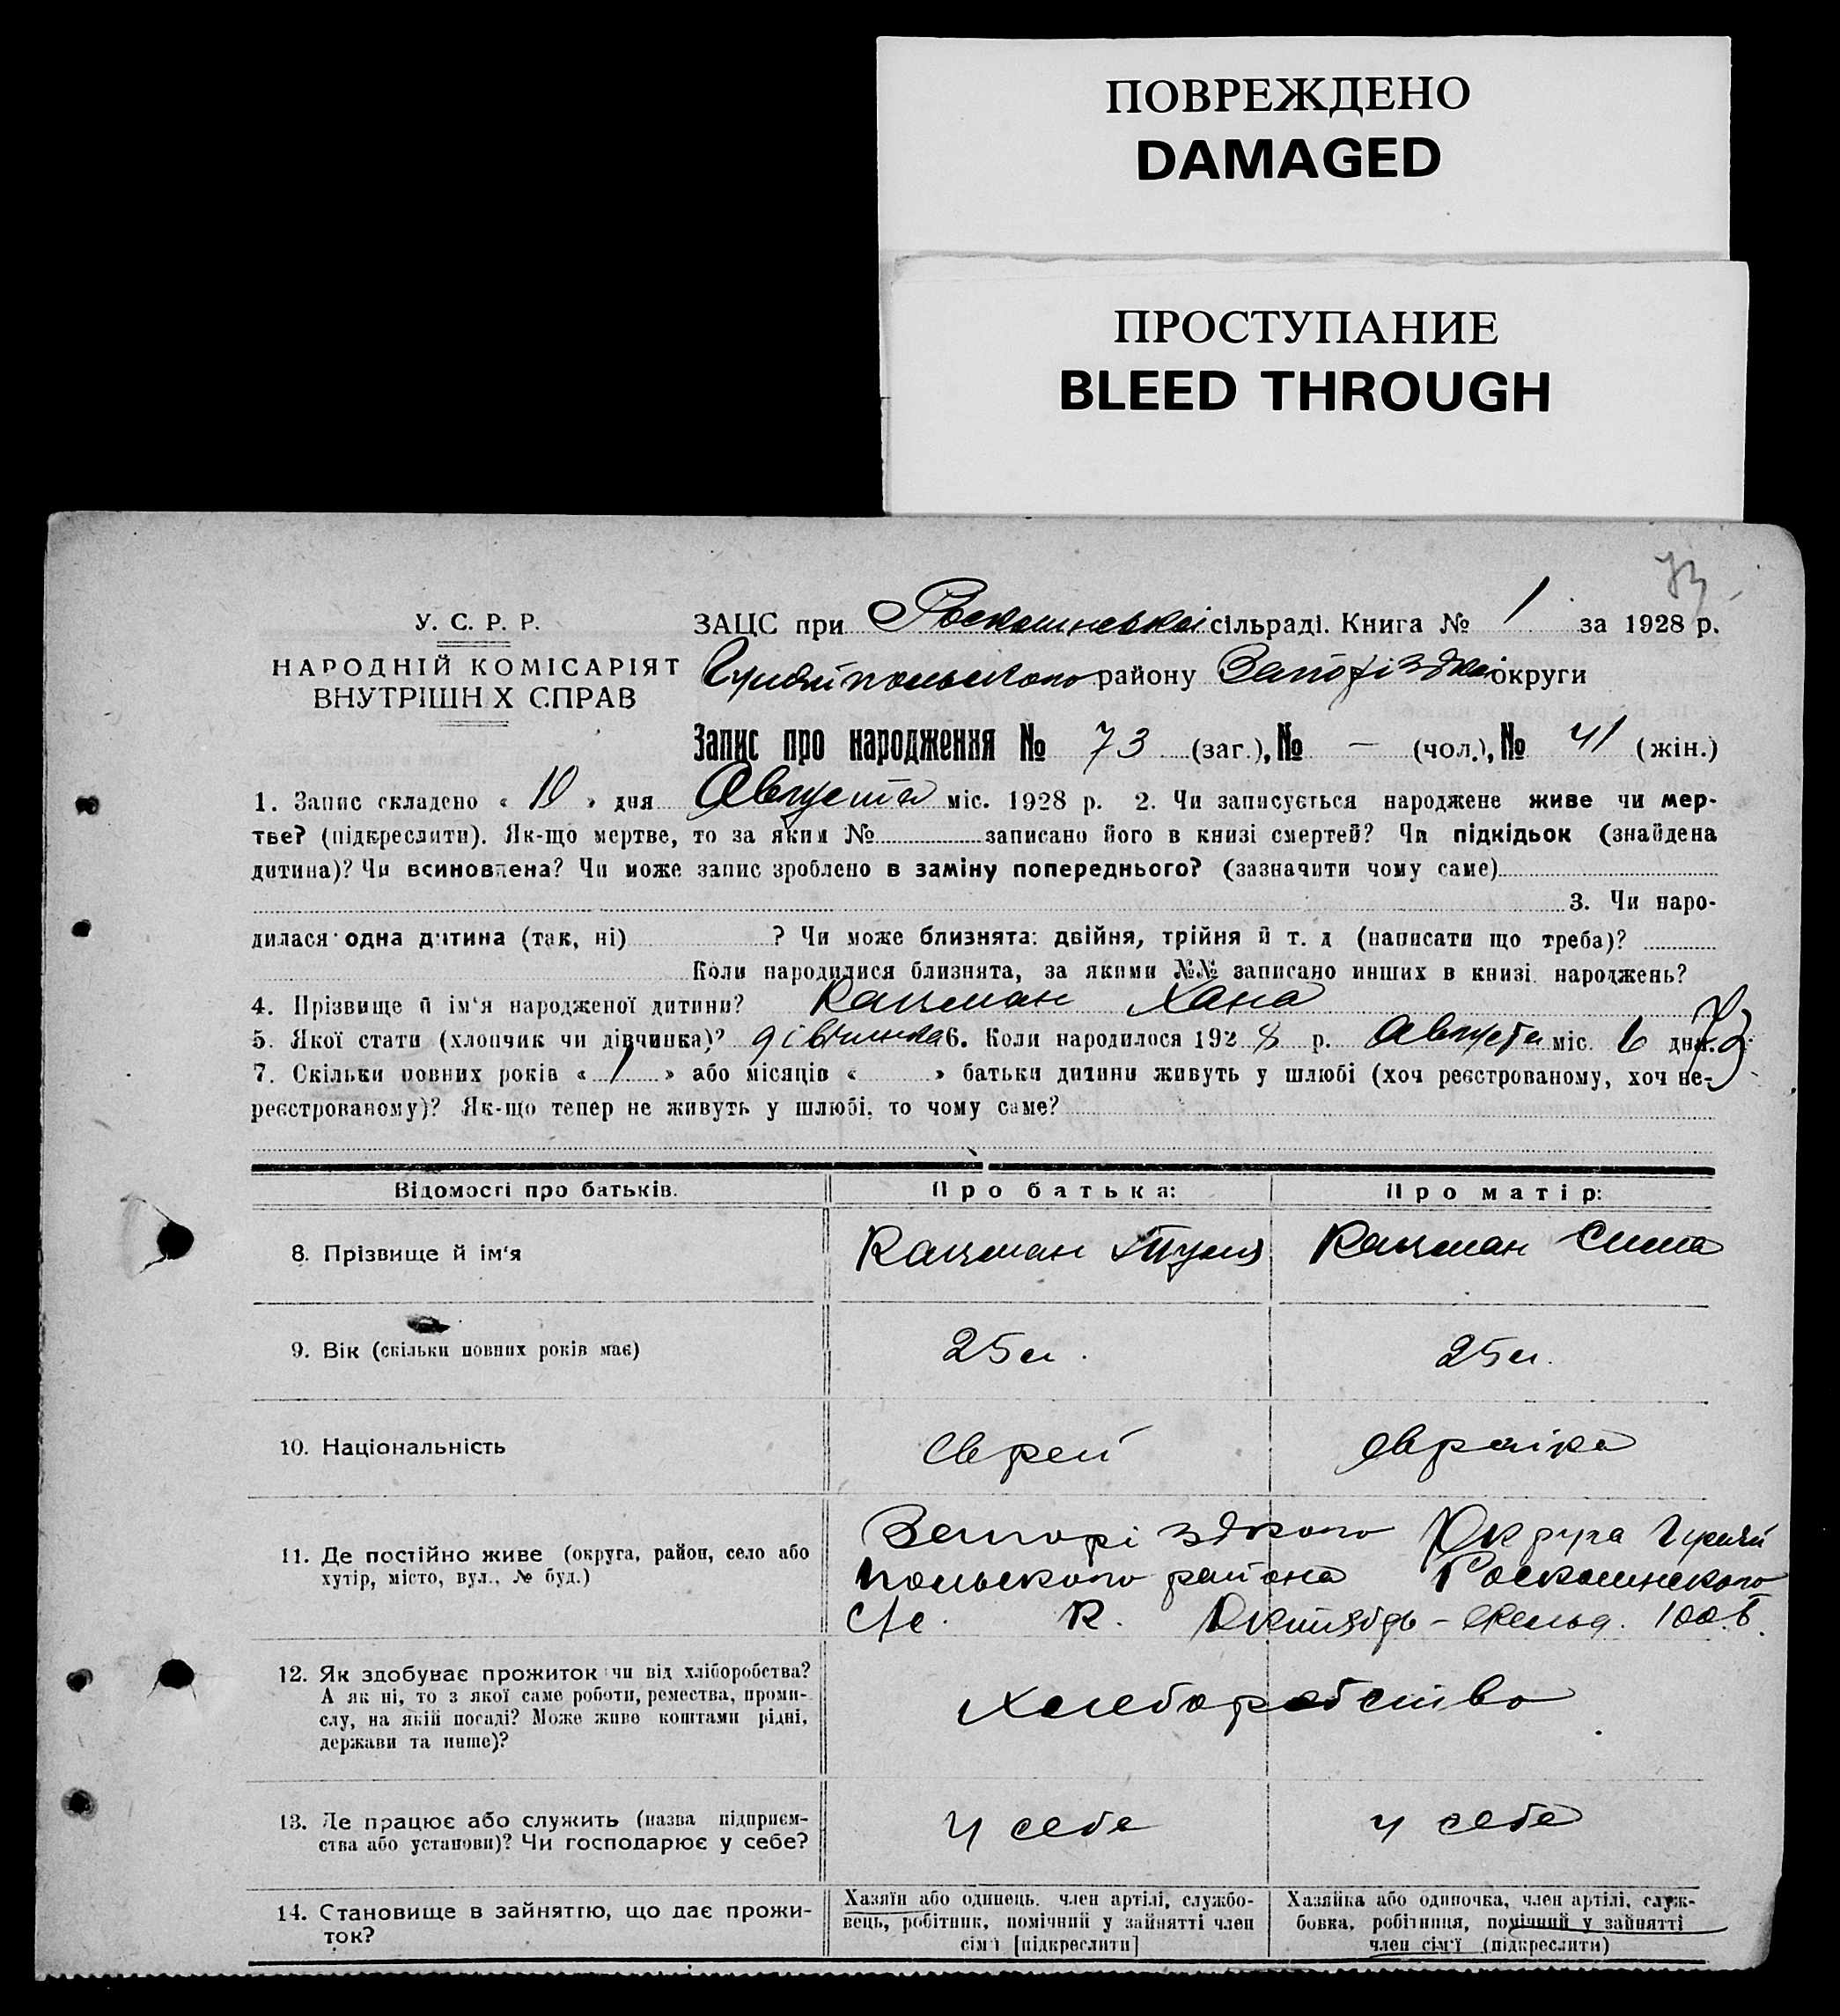 ПОВРЕЖДЕНО
DAMAGED
ПРОСТУПАНИЕ
BLEED THROUGH
73
У. С. Р. Р.
НАРОДНІЙ КОМІСАРІЯТ
ВНУТРІШН Х СПРАВ
ЗАЦС при Роскошинській сільраді. Книга № 1 за 1928 р.
Гуляйпольского району Запорізької округи
Запис про народження № 73 (заг.), № — (чол.), № 41 (жін.)
1. Запис складено « 10 » дня Августа міс. 1928 р. 2. Чи записується народжене живе чи мер-
тве? (підкреслити). Як-що мертве, то за яким № записано його в книзі смертей? Чи підкідьок (знайдена
дитина)? Чи всиновлена? Чи може запис зроблено в заміну попереднього? (зазначити чому саме)
3. Чи наро-
дилася одна дитина (так, ні) ? Чи може близнята: двійня, трійня й т. д (написати що треба)?
Коли народилися близнята, за якими №№ записано инших в книзі народжень?
4. Прізвище й ім'я народженої дитини? Кацман Хана
5. Якої стати (хлопчик чи дівчинка)? дівчинка 6. Коли народилося 1928 р. Августа міс. 6 дня. 73
7. Скільки повних років « 1 » або місяців « » батьки дитини живуть у шлюбі (хоч реєстрованому, хоч не-
реєстрованому)? Як-що тепер не живуть у шлюбі, то чому саме?
Відомості про батьків. Про батька: Про матір:
8. Прізвище й ім'я Кацман Кацман Сима
9. Вік (скільки повних років має) 25 л. 25 л.
10. Національність Єврей Єврейка
11. Де постійно живе (округа, район, село або
хутір, місто, вул., № буд.)
Запорізького Округа Гуляй
польского района Роскошинского
с/с. К. Октябрь-Фельд. 100 б.
12. Як здобуває прожиток чи від хліборобства?
А як ні, то з якої саме роботи, ремества, проми-
слу, на якій посаді? Може живе коштами рідні,
держави та инше)?
Хлеборобство
13. Де працює або служить (назва підприєм-
ства або установи)? Чи господарює у себе?
у себе у себе
14. Становище в зайняттю, що дає прожи-
ток?
Хазяїн або одинець, член артілі, службо-
вець, робітник, помічний у зайнятті член
сім'ї [підкреслити]
Хазяйка або одиночка, член артілі, служ-
бовка, робітниця, помічний у зайнятті
член сім'ї (підкреслити)